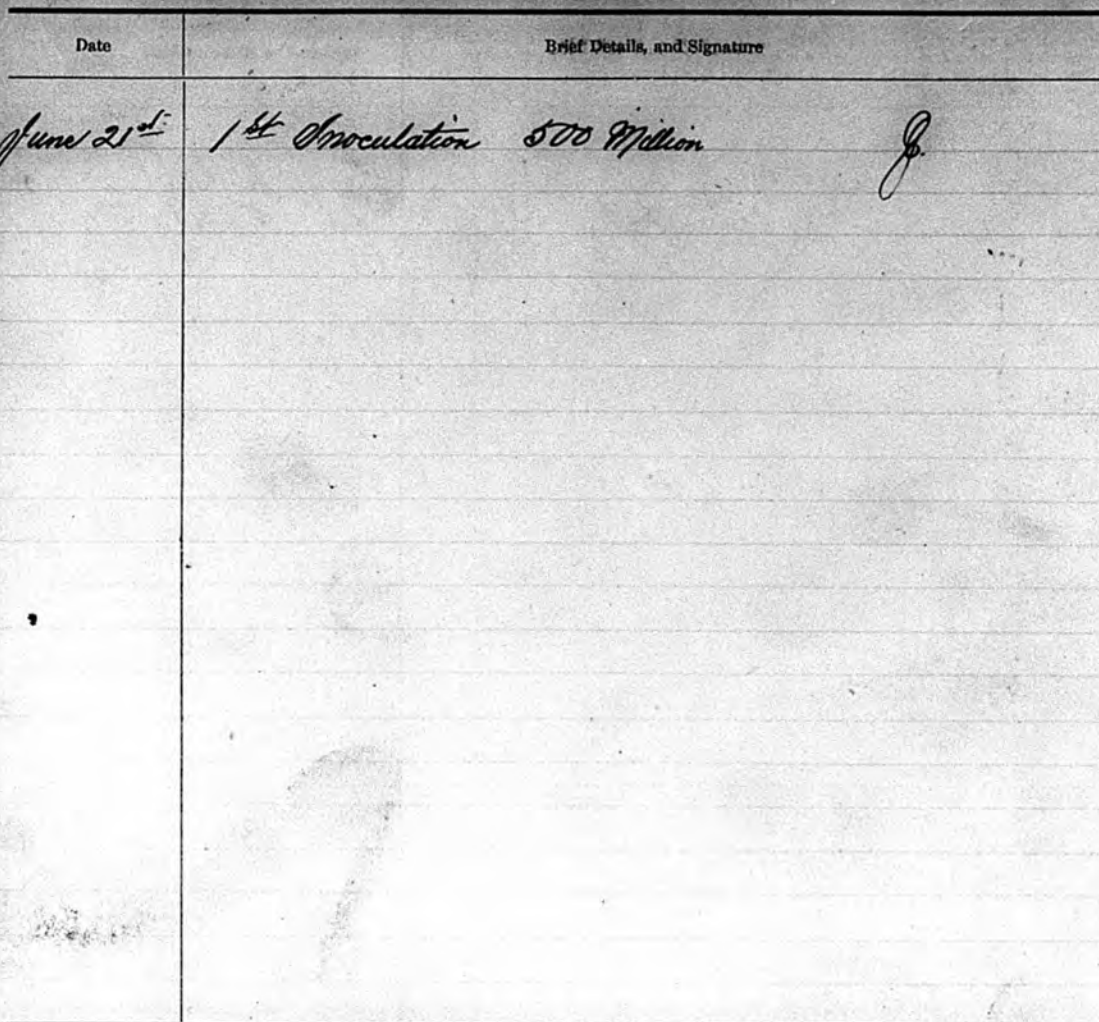 Date Brief Details, and Signature
June 21st 1st Inoculation 500 Million